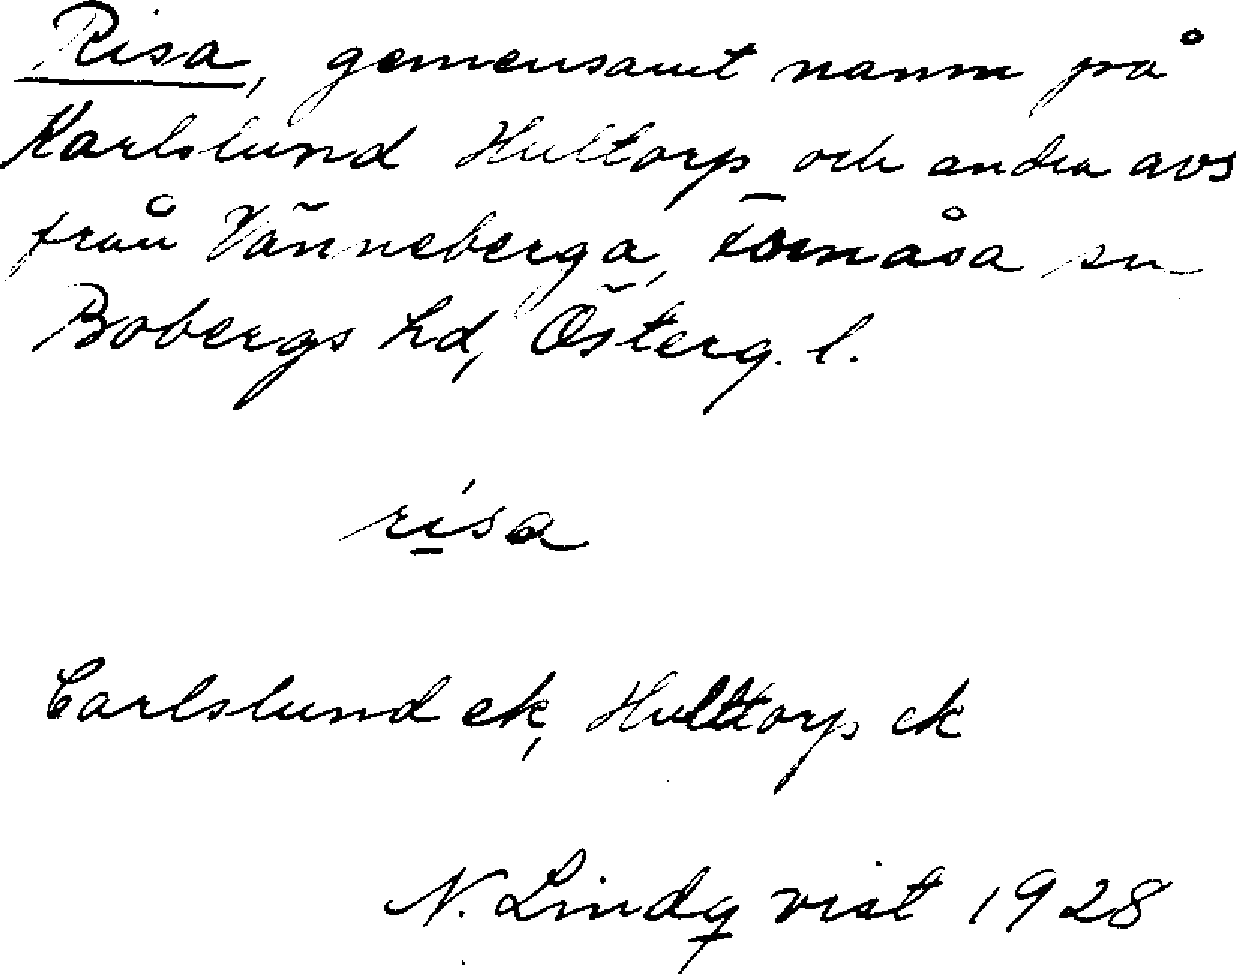 Risa, gemensamt namn på
Karlslund Hultorp och andra avs
från Vänneberga, Tornåsa sn
Bobergs hd, Österg. l.
risa
Carlslund ek, Hulttorp ek
N. Lindqvist 1928